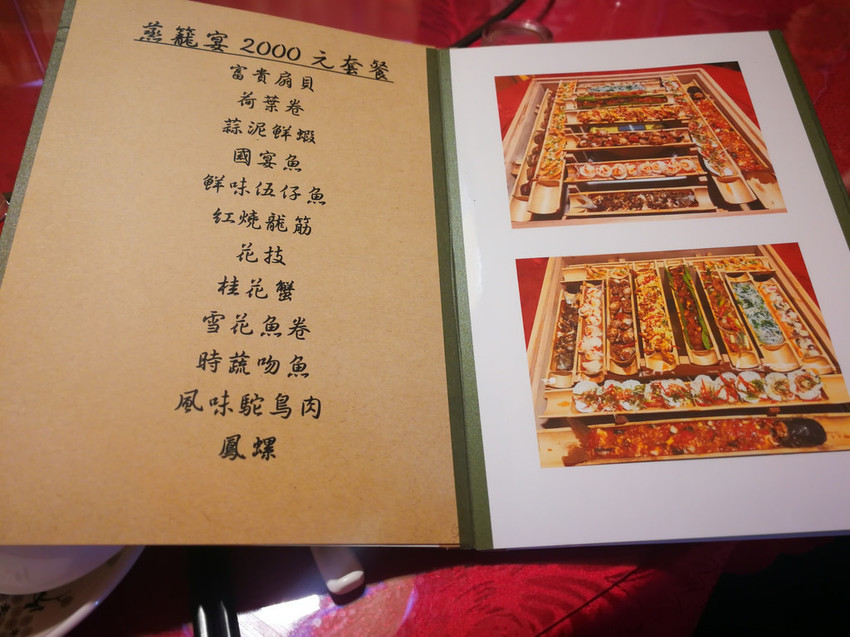 蒸籠宴2000元套餐
富貴扇貝
荷葉卷
蒜泥鮮蝦
國宴魚
鮮味伍仔魚
紅燒龍筋
花技
桂花蟹
雪花魚卷
時蔬吻魚
風味駝鳥肉
鳳螺